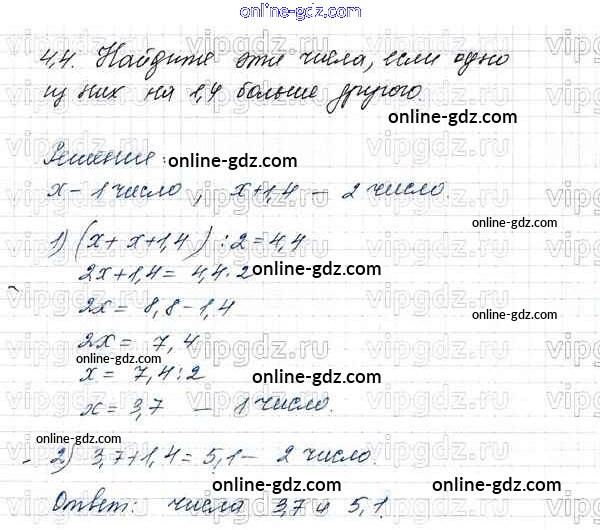 online-gdz.com
4,4. Найдите эти числа, если одно
из них на 1,4 больше другого.
online-gdz.com
Решение: online-gdz.com
x - 1 число, x+1,4 - 2 число.
online-gdz.com
1) (x + x+1,4) : 2 = 4,4
2x+1,4 = 4,4·2 online-gdz.com
vipgdz.ru
2x = 8,8-1,4
2x = 7,4
online-gdz.com
x = 7,4:2 online-gdz.com
x = 3,7 - 1 число.
online-gdz.com
2) 3,7+1,4 = 5,1 - 2 число.
online-gdz.com online-gdz.com
Ответ: числа 3,7 и 5,1.
online-gdz.com